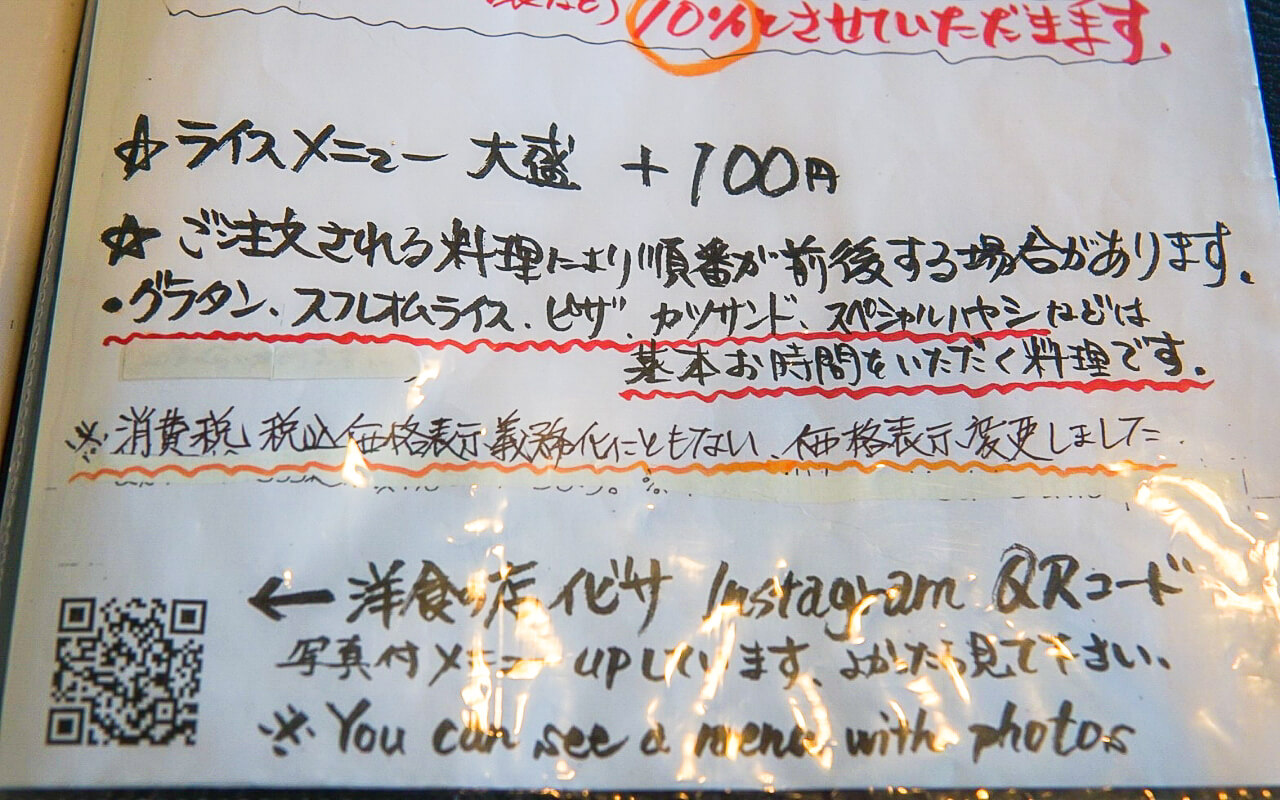 10%とさせていただきます。
☆ライスメニュー 大盛 +100円
☆ご注文される料理により順番が前後する場合があります。
・グラタン、スフレオムライス、ピザ、カツサンド、スペシャルハヤシなどは
基本お時間をいただく料理です。
※消費税、税込価格表示義務化にともない、価格表示変更しました
←洋食の店 イビサ Instagram QRコード
写真付メニュー upしています、よかったら見て下さい。
※You can see a menu with photos